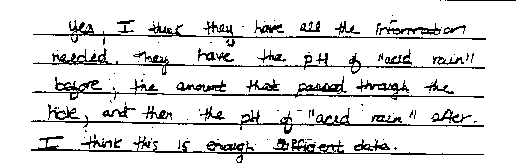 Yes, I think they have all the information
needed. They have the pH of "acid rain"
before, the amount that passed through the
tick, and then the pH of "acid rain" after.
I think this is enough sufficient data.